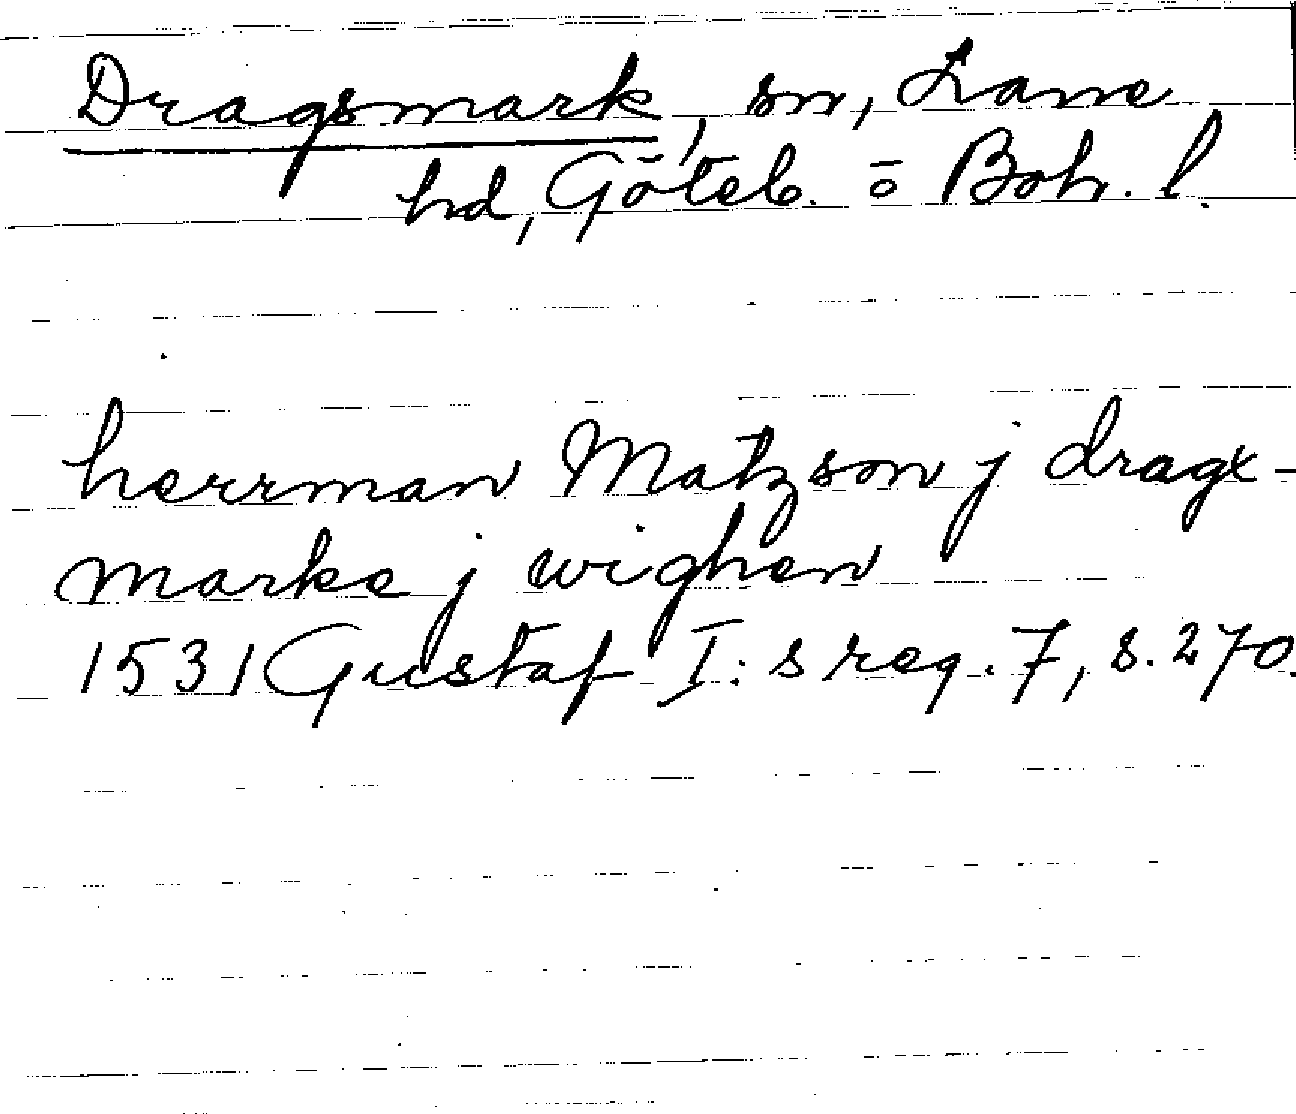 Dragsmark, sn, Lane
hd, Göteb. o Boh. l.
herrman Matzson j dragx-
marke j wighen
1531 Gustaf I:s reg. 7, s. 270.